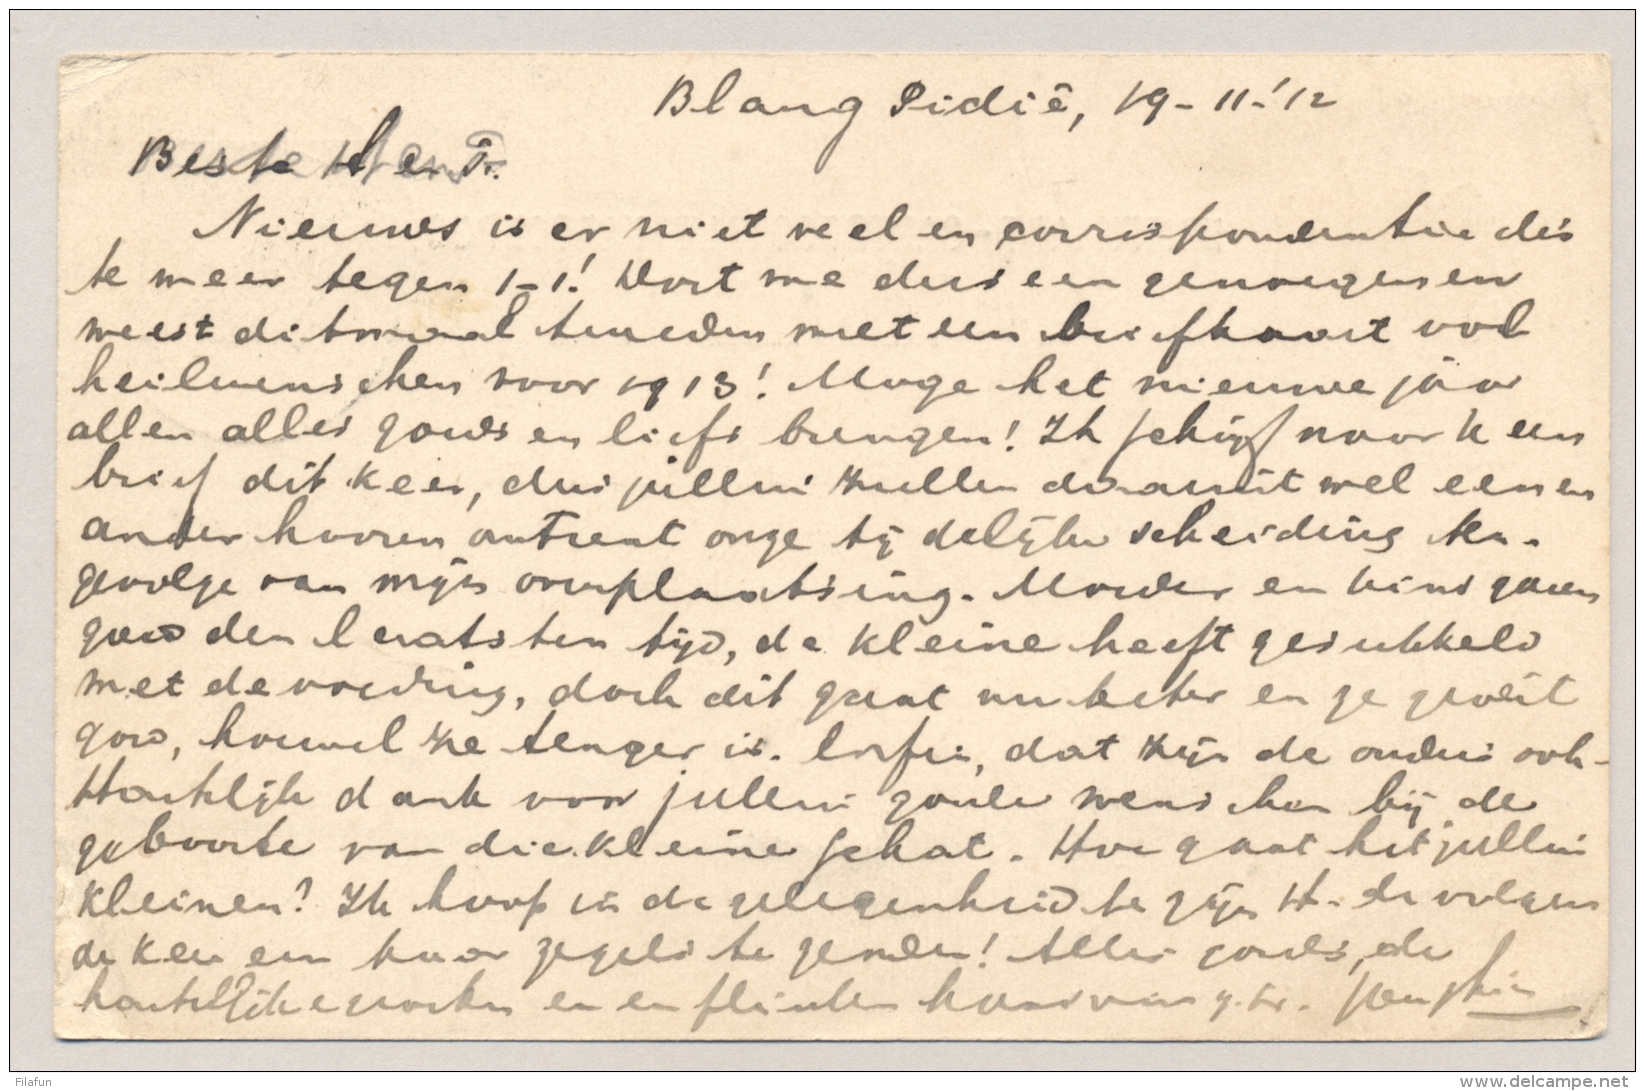 Blang Pidië, 19-11-'12
Beste
Nieuws is er niet veel en correspondentie des
te meer tegen 1-1! Wort me dus een genoegen en
weest ditmaal tevreden met een briefkaart vol
heilwenschen voor 1913! Moge het nieuwe jaar
allen alles goeds en liefs brengen! Ik schrijf naar k een
brief dit keer, dus jullie zullen daaruit wel eens en
ander hooren omtrent onze tijdelijke scheiding ten-
gevolge van mijn overplaatsing. Moeder en kind gaven
goed den laatsten tijd, de kleine heeft gesukkeld
met de voeding, doch dit gaat nu beter en ze groeit
goed, hoewel ze tenger is. Enfin, dat zijn de ouders ook-
Hartelijk dank voor jullie goede wenschen bij de
geboorte van die kleine schat. Hoe gaat het jullie
kleinen? Ik hoop in de gelegenheid te zijn H. de volgen
de keer een paar zegels te zenden! Alles goeds, de
hartelijke groeten en en flinken hand van
Filafun
www.delcampe.net